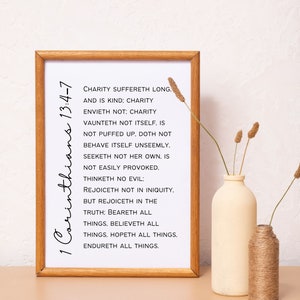 1 Corinthians 13:4-7
Charity suffereth long,
and is kind; charity
envieth not; charity
vaunteth not itself, is
not puffed up, doth not
behave itself unseemly,
seeketh not her own, is
not easily provoked,
thinketh no evil;
Rejoiceth not in iniquity,
but rejoiceth in the
truth; Beareth all
things, believeth all
things, hopeth all things,
endureth all things.